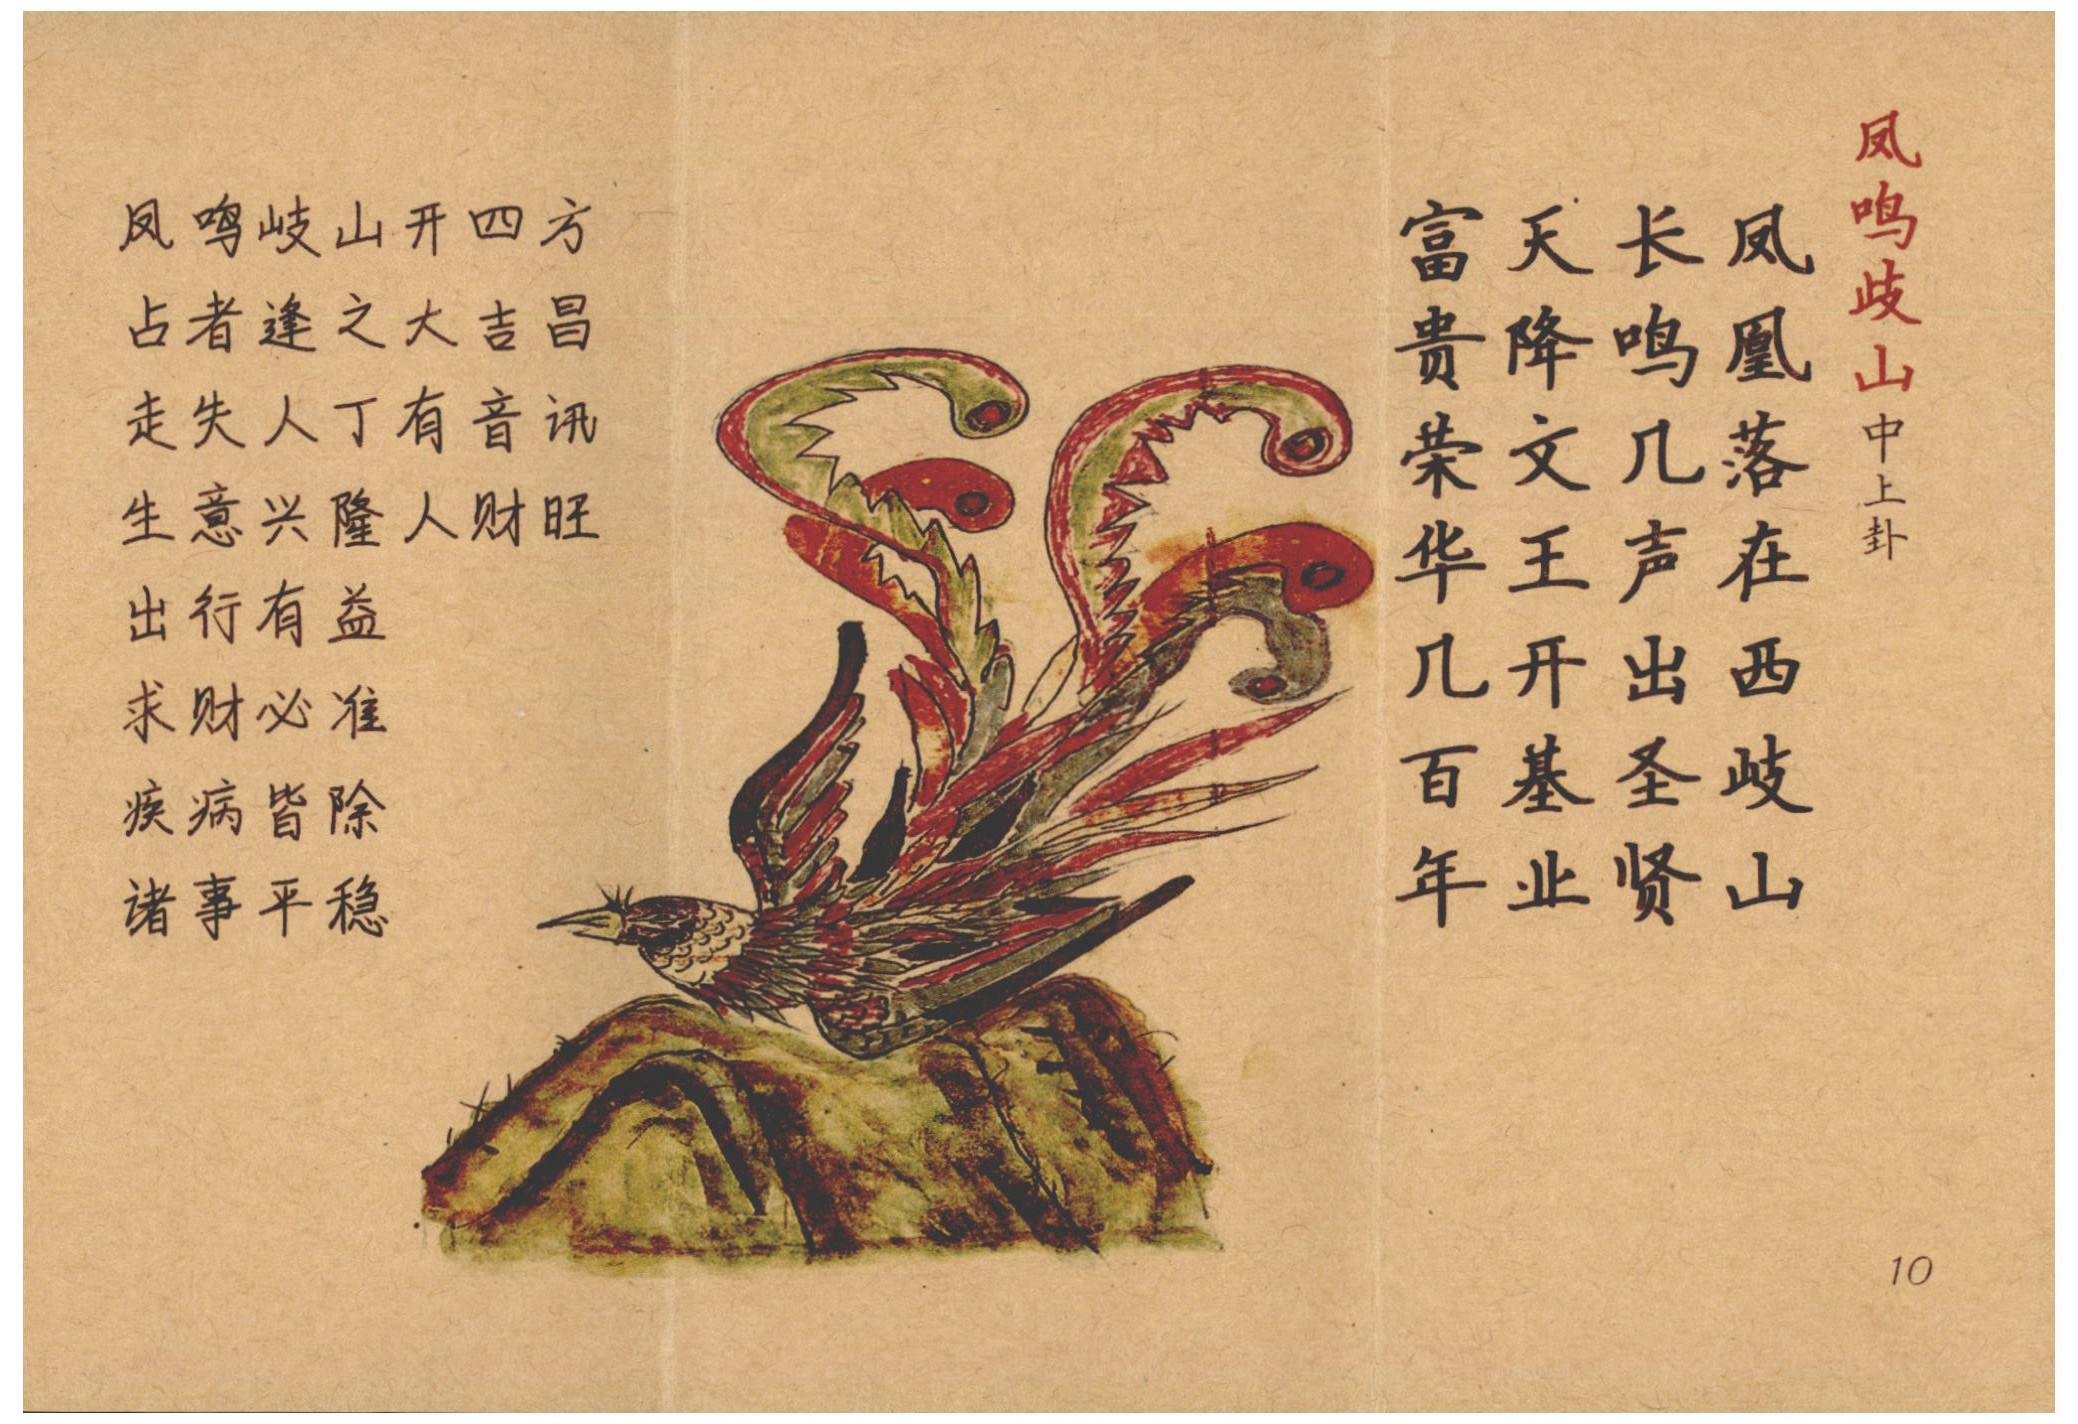 凤鸣歧山中上卦
凤凰落在西岐山
长鸣几声出圣贤
天降文王开基业
富贵荣华几百年
凤鸣岐山开四方
占者逢之大吉昌
走失人丁有音讯
生意兴隆人财旺
出行有益
求财必准
疾病皆除
诸事平稳
10